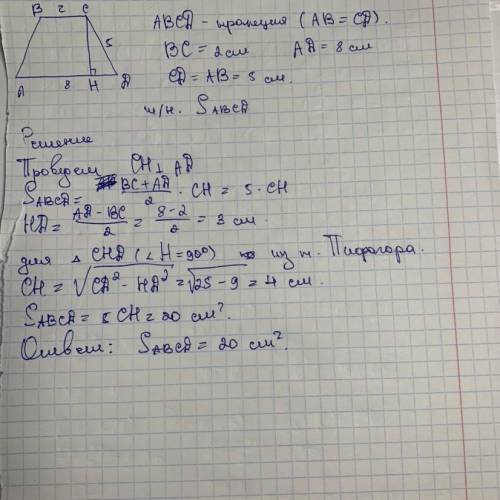 B 2 C
5
A 8 H D
ABCD - трапеция (AB = CD).
BC = 2 см AD = 8 см
CD = AB = 5 см.
н/н. SABCD
Решение
Проведем CH ⊥ AD
SABCD = (BC+AD)/2 · CH = 5 · CH
HD = (AD-BC)/2 = (8-2)/2 = 3 см.
для △ CHD (∠H = 90°) из т. Пифагора.
CH = √(CD² - HD²) = √(25 - 9) = 4 см.
SABCD = 5 CH = 20 см².
Ответ: SABCD = 20 см².